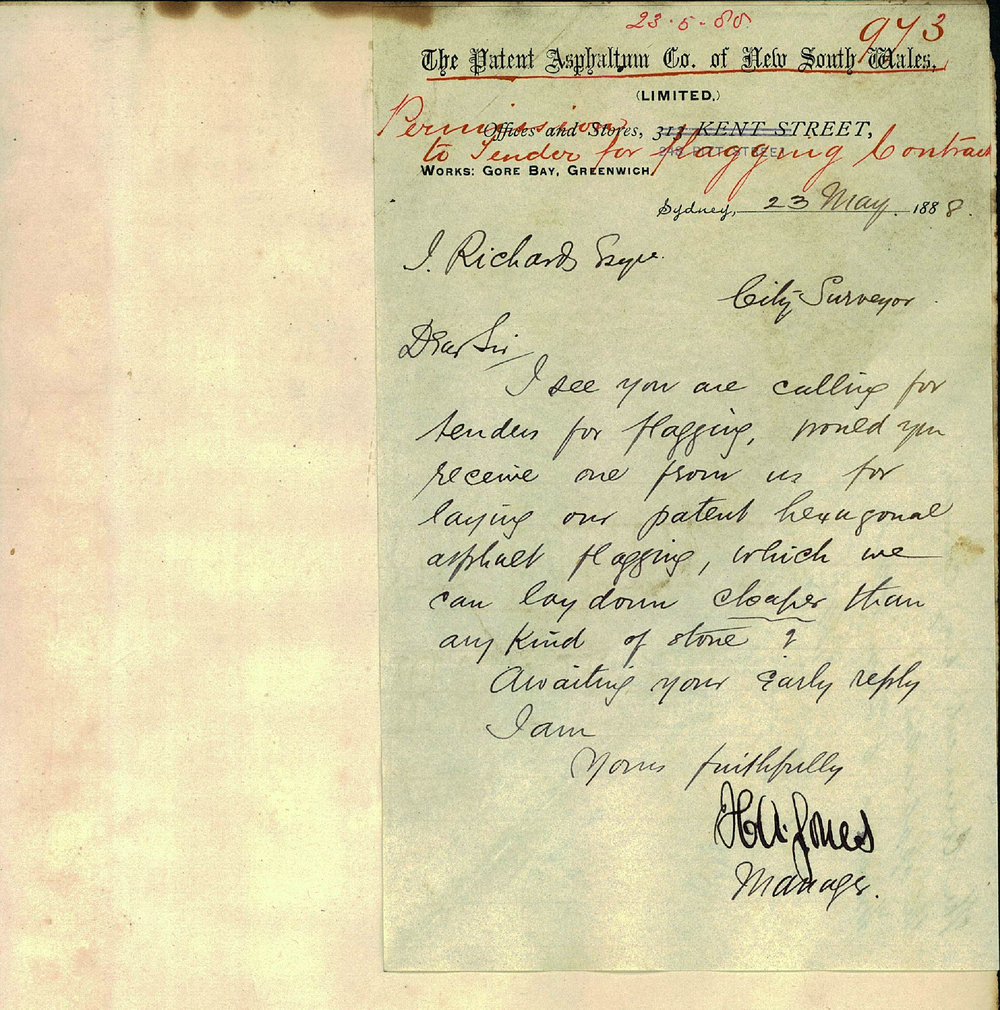 23·5·88
973
The Patent Asphaltum Co. of New South Wales,
(LIMITED,)
Permission
Offices and Stores, 313 KENT STREET,
to Tender for flagging Contract
WORKS: GORE BAY, GREENWICH,
Sydney, 23 May. 1888.
J. Richards Esqre.
City Surveyor
Dear Sir
I see you are calling for
tenders for flagging, would you
receive one from us for
laying our patent hexagonal
asphalt flagging, which we
can lay down cheaper than
any kind of stone?
Awaiting your early reply
I am
Yours faithfully
Jones
Manager.